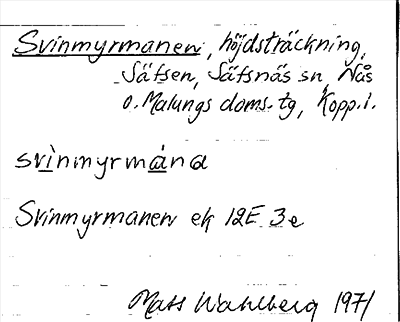 Svinmyrmanen, höjdsträckning,
Säfsen, Säfsnäs sn, Nås
o. Malungs doms. tg, Kopp. l.
svinmyrmána
Svinmyrmanen ek 12E 3e
Mats Wahlberg 1971